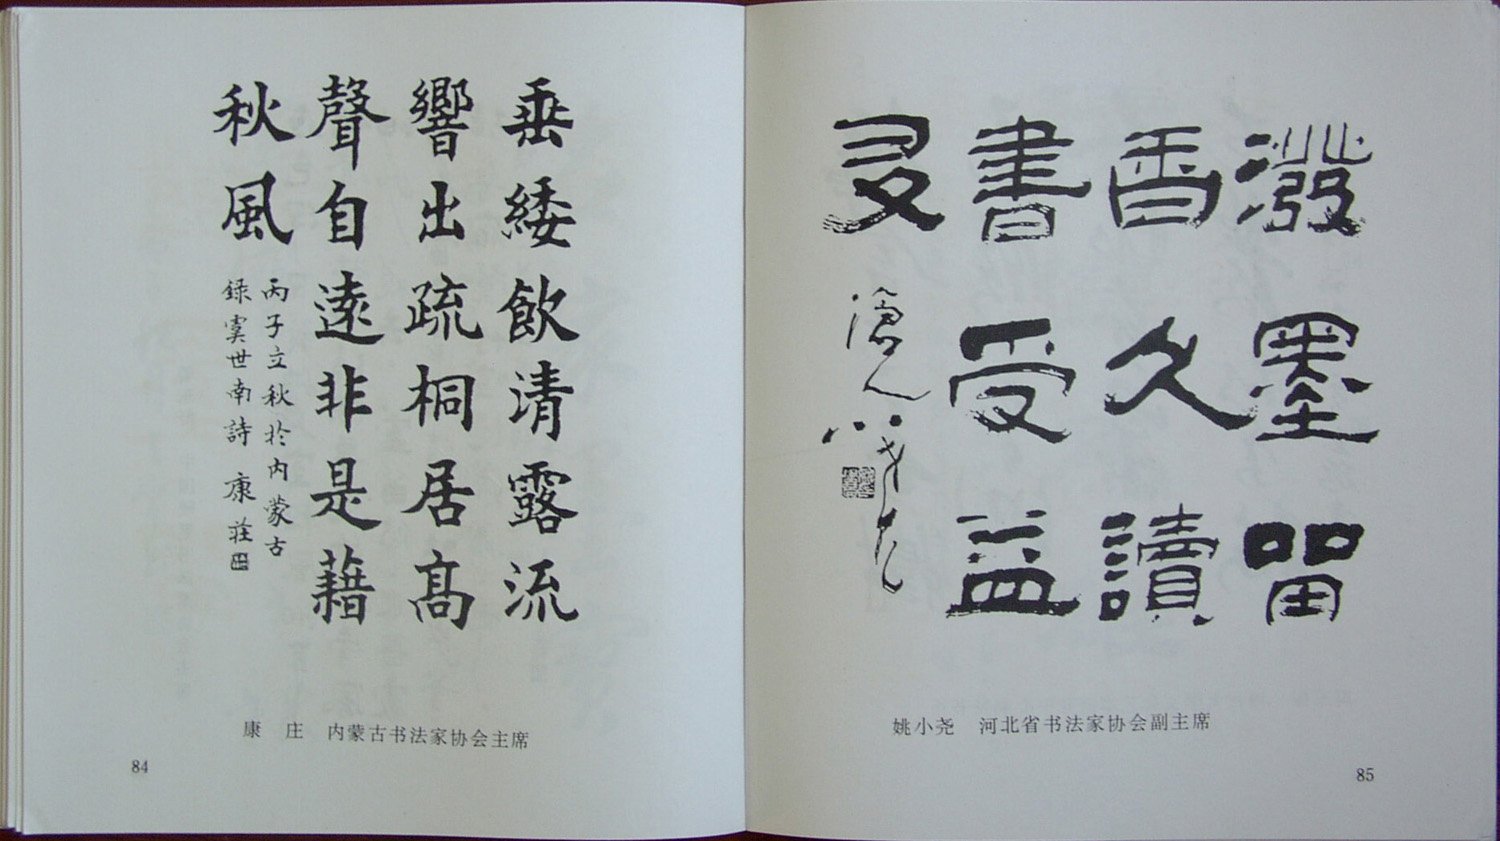 垂緌飲清露流
響出疏桐居高
聲自遠非是藉
秋風
丙子立秋於内蒙古
録虞世南詩 康莊
康 庄 内蒙古书法家协会主席
84
潑墨留
香久讀
書受益
多
姚小尧 河北省书法家协会副主席
85